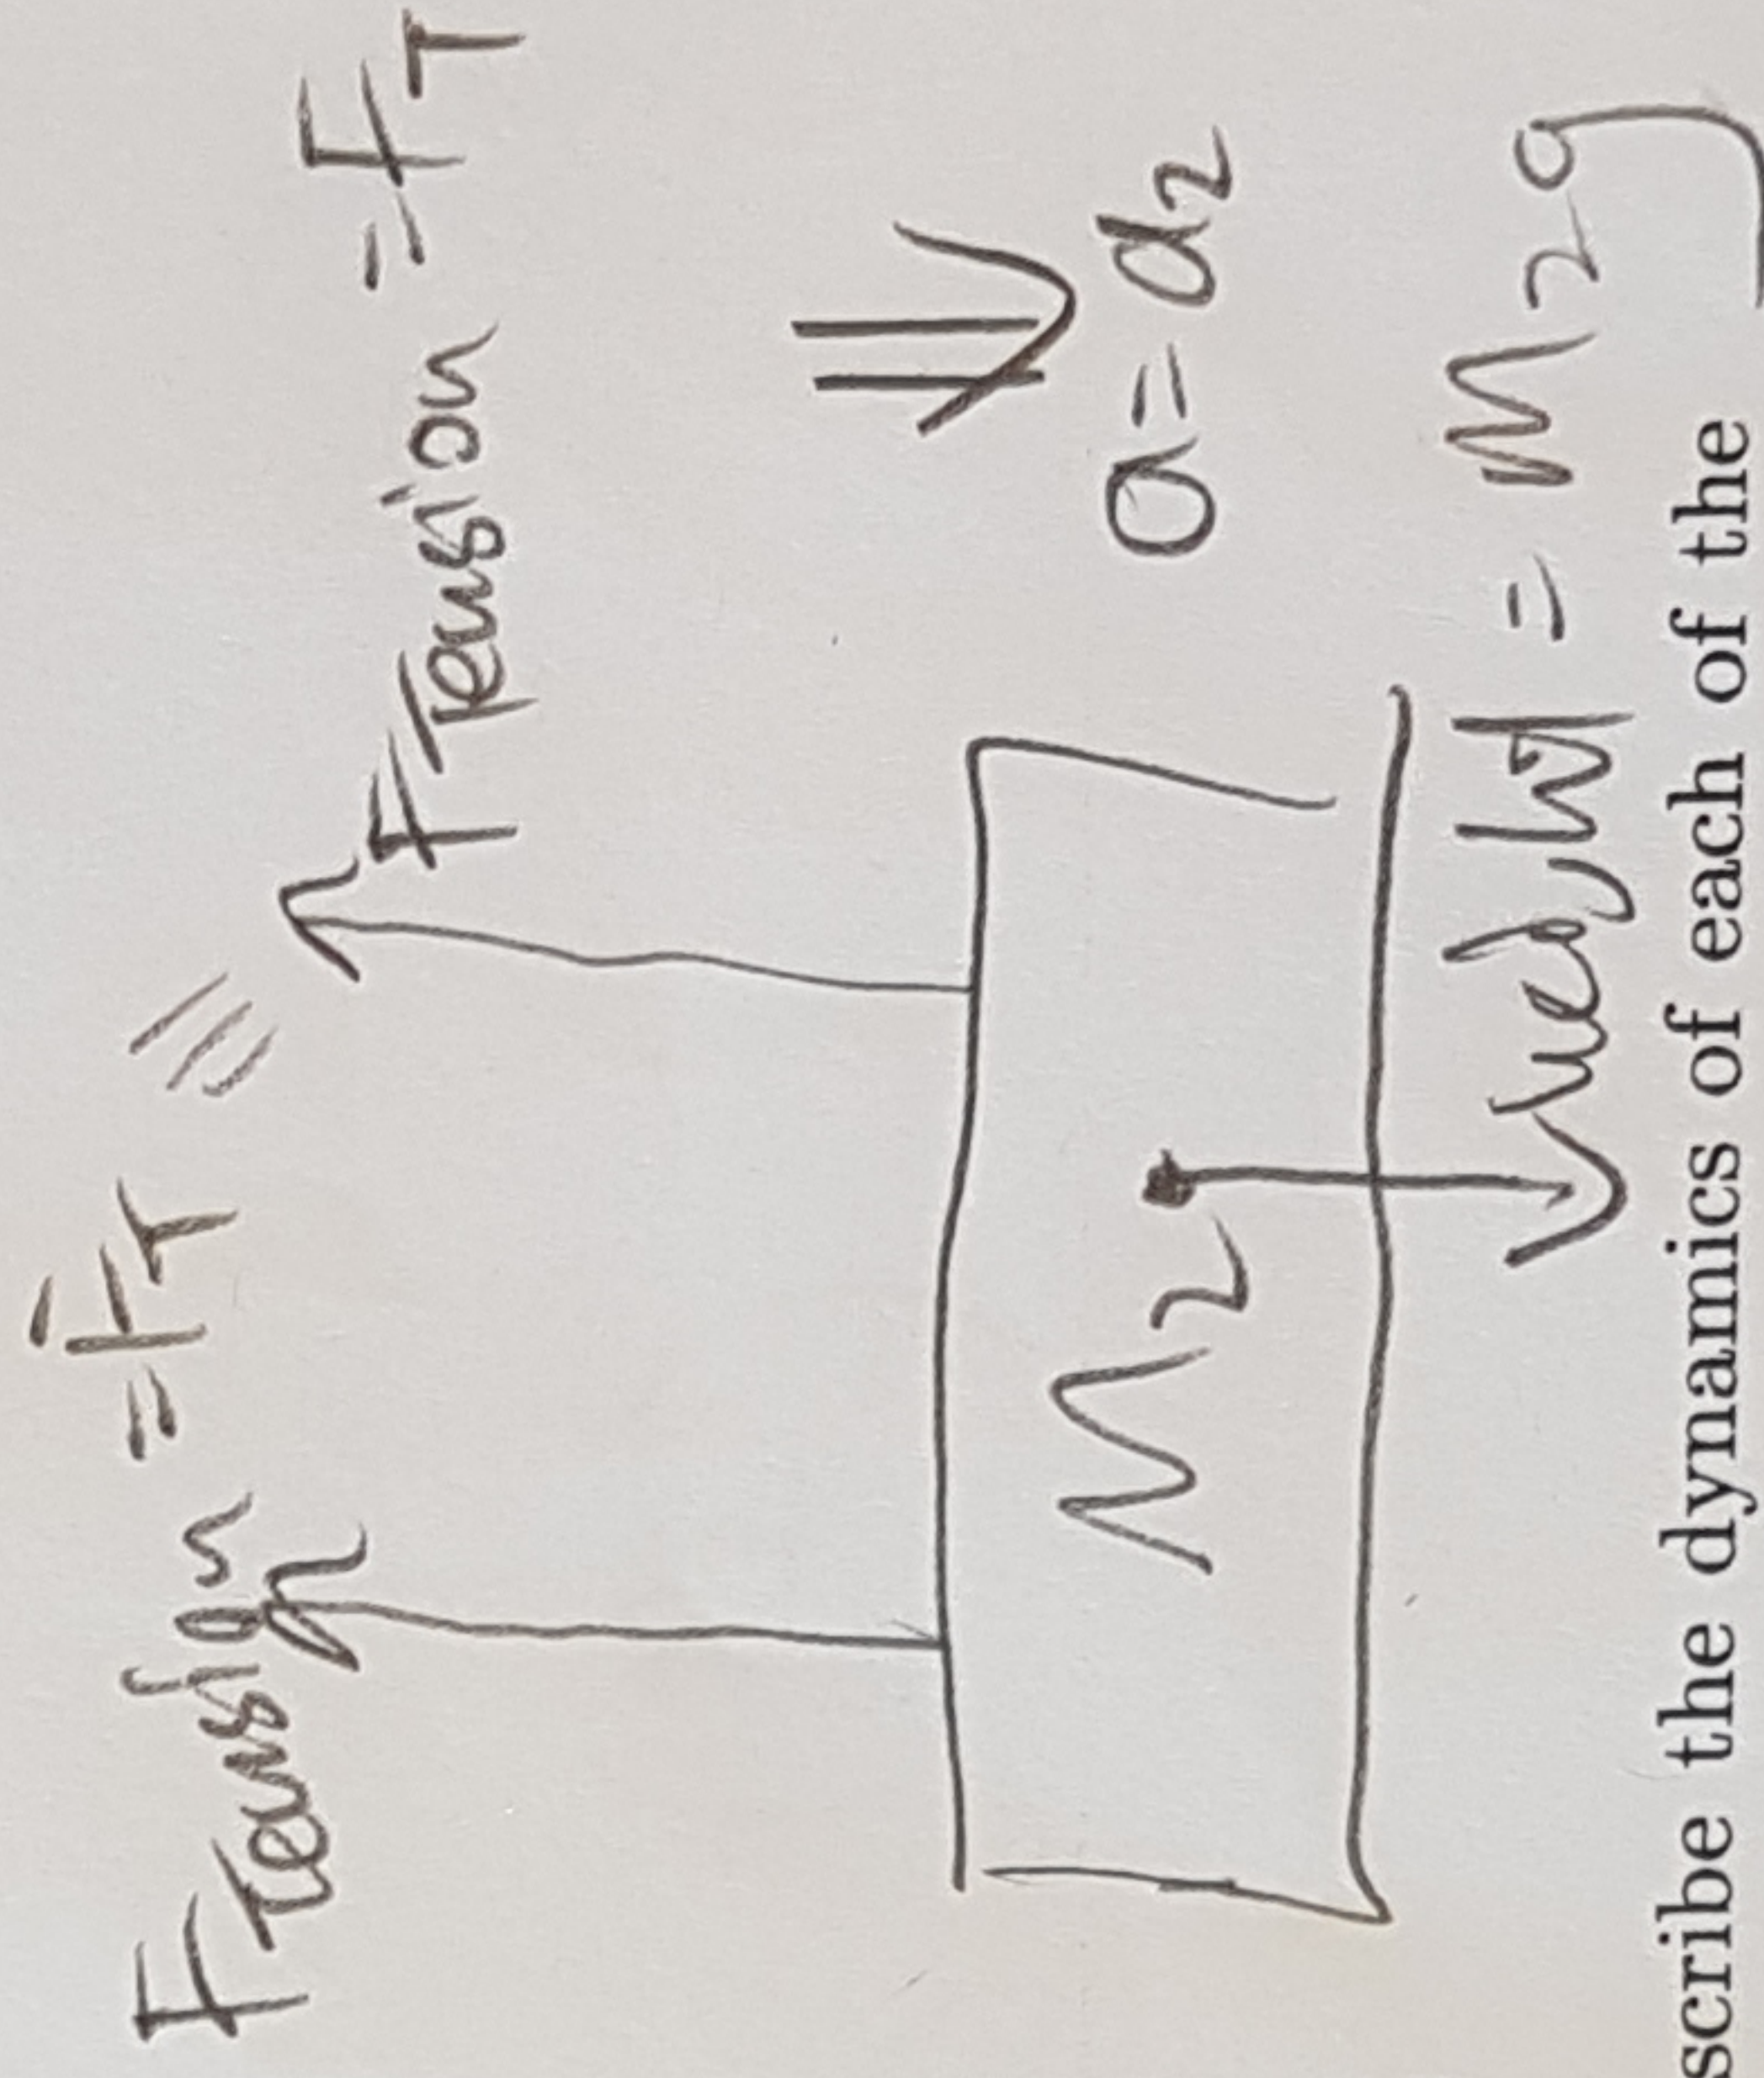 FTension = FT
FTension = FT
a = a2
M2
= M2g
scribe the dynamics of each of the